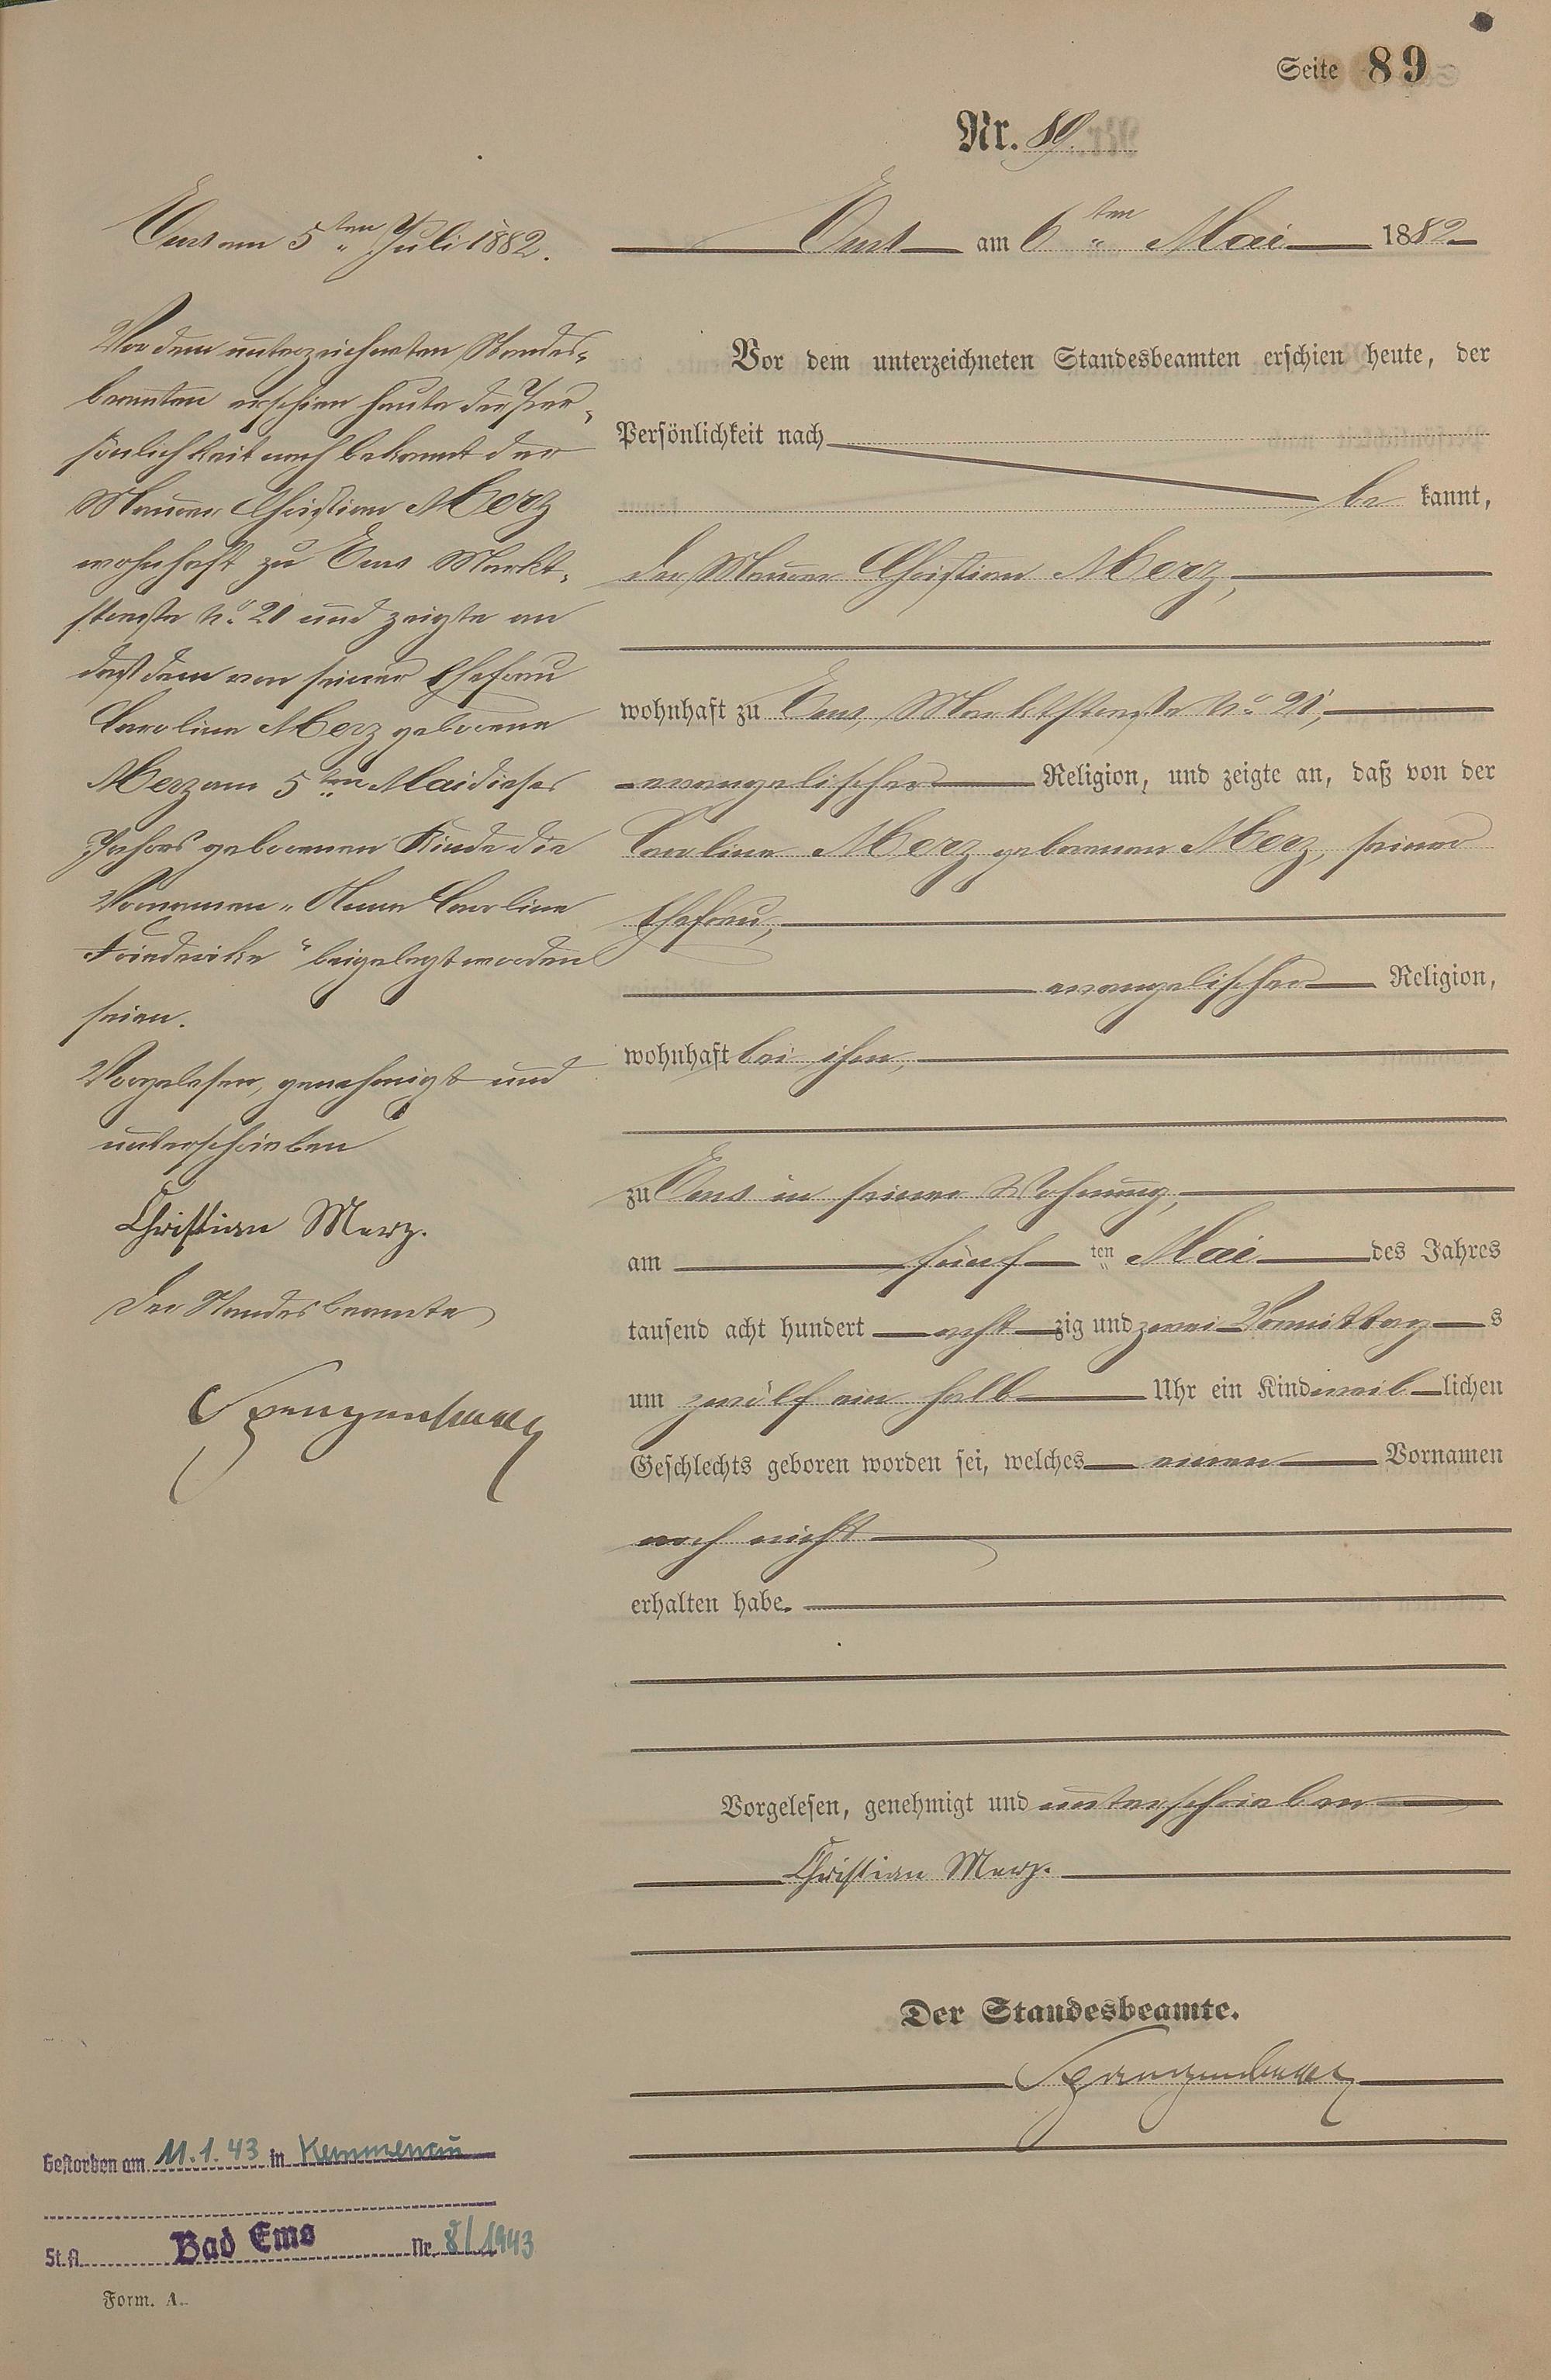 Seite 89
Nr. 89.
Ems am 6ten Mai 1882
Vor dem unterzeichneten Standesbeamten erschien heute, der
Persönlichkeit nach
be kannt,
der Maurer Christian Merz,
wohnhaft zu Ems, Marktstraße No. 21,
evangelischer Religion, und zeigte an, daß von der
Caroline Merz geborenen Merz, seiner
Ehefrau,
evangelischer Religion,
wohnhaft bei ihm,
zu Ems in seiner Wohnung,
am fünf ten Mai des Jahres
tausend acht hundert acht zig und zwei Vormittag s
um zwölf ein halb Uhr ein Kind weib lichen
Geschlechts geboren worden sei, welches einen Vornamen
noch nicht
erhalten habe.
Vorgelesen, genehmigt und unterschrieben
Christian Merz.
Der Standesbeamte.
Ems am 5ten Juli 1882.
Vor dem unterzeichneten Standes-
beamten erschien heute der Per-
sönlichkeit nach bekannt der
Maurer Christian Merz
wohnhaft zu Ems Markt-
straße No. 21 und zeigte an
daß dem von seiner Ehefrau
Caroline Merz geborene
Merz am 5ten Mai dieses
Jahres geborenen Kinde die
Vornamen "Anna Caroline
Friederike" beigelegt worden
seien.
Vorgelesen, genehmigt und
unterschrieben
Christian Merz.
Der Standesbeamte
Gestorben am 11.1.43 in Kemmenau
St.A. Bad Ems Nr. 8/1943
Form. A.